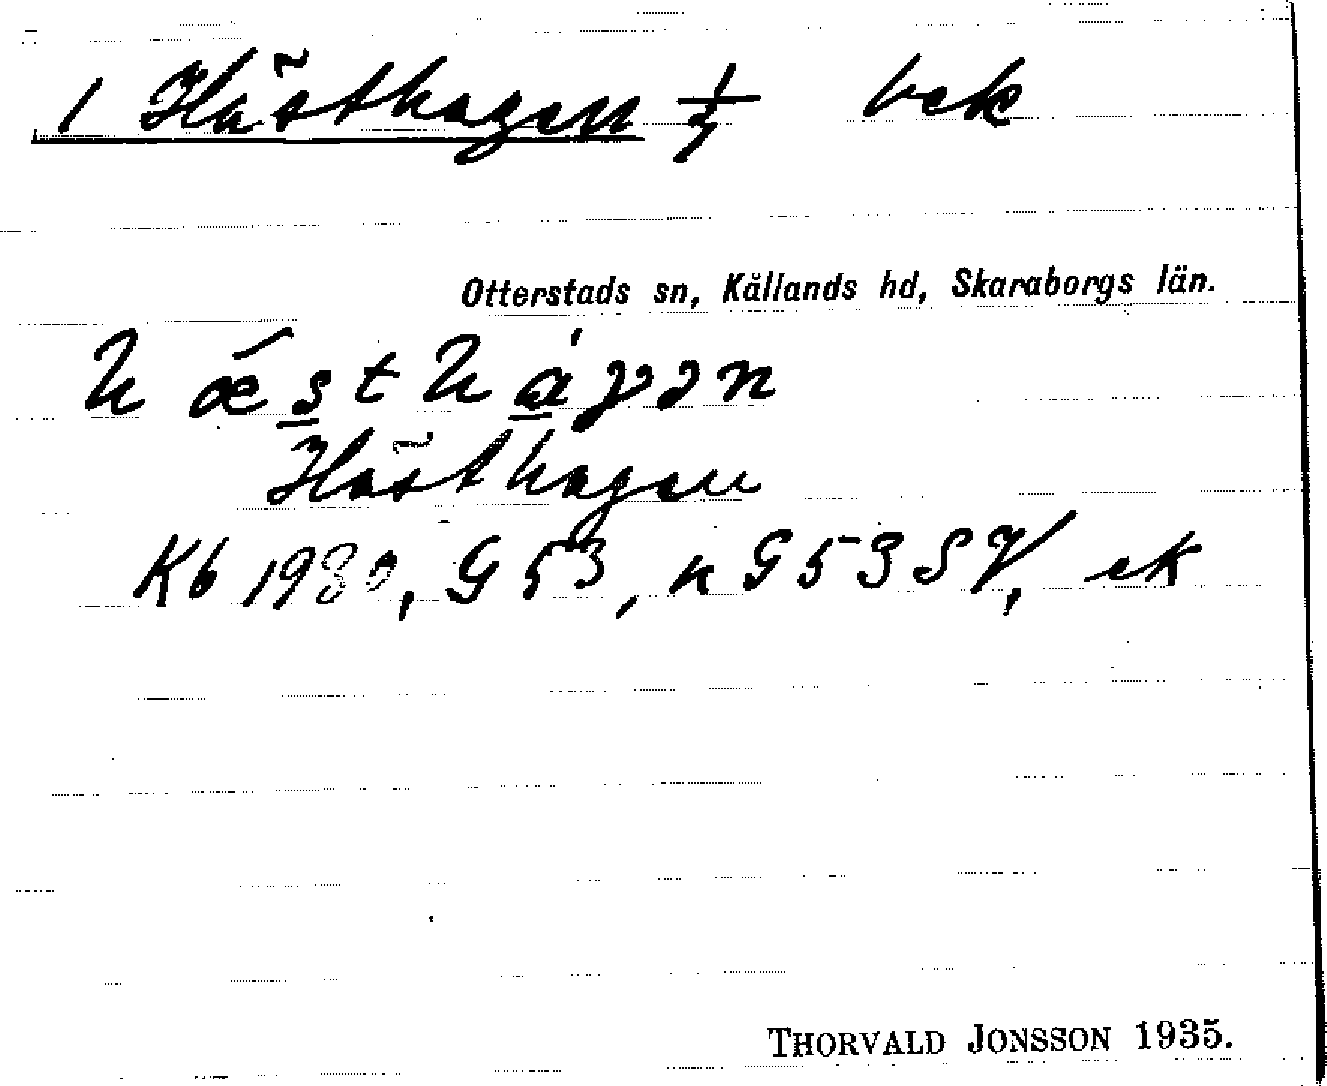 1 Hästhagen ⸸ bek
Otterstads sn, Kållands hd, Skaraborgs län.
hæ´sthàγən
Hästhagen
Kb 1930, G 53, n G 53 SV, ek
THORVALD JONSSON 1935.